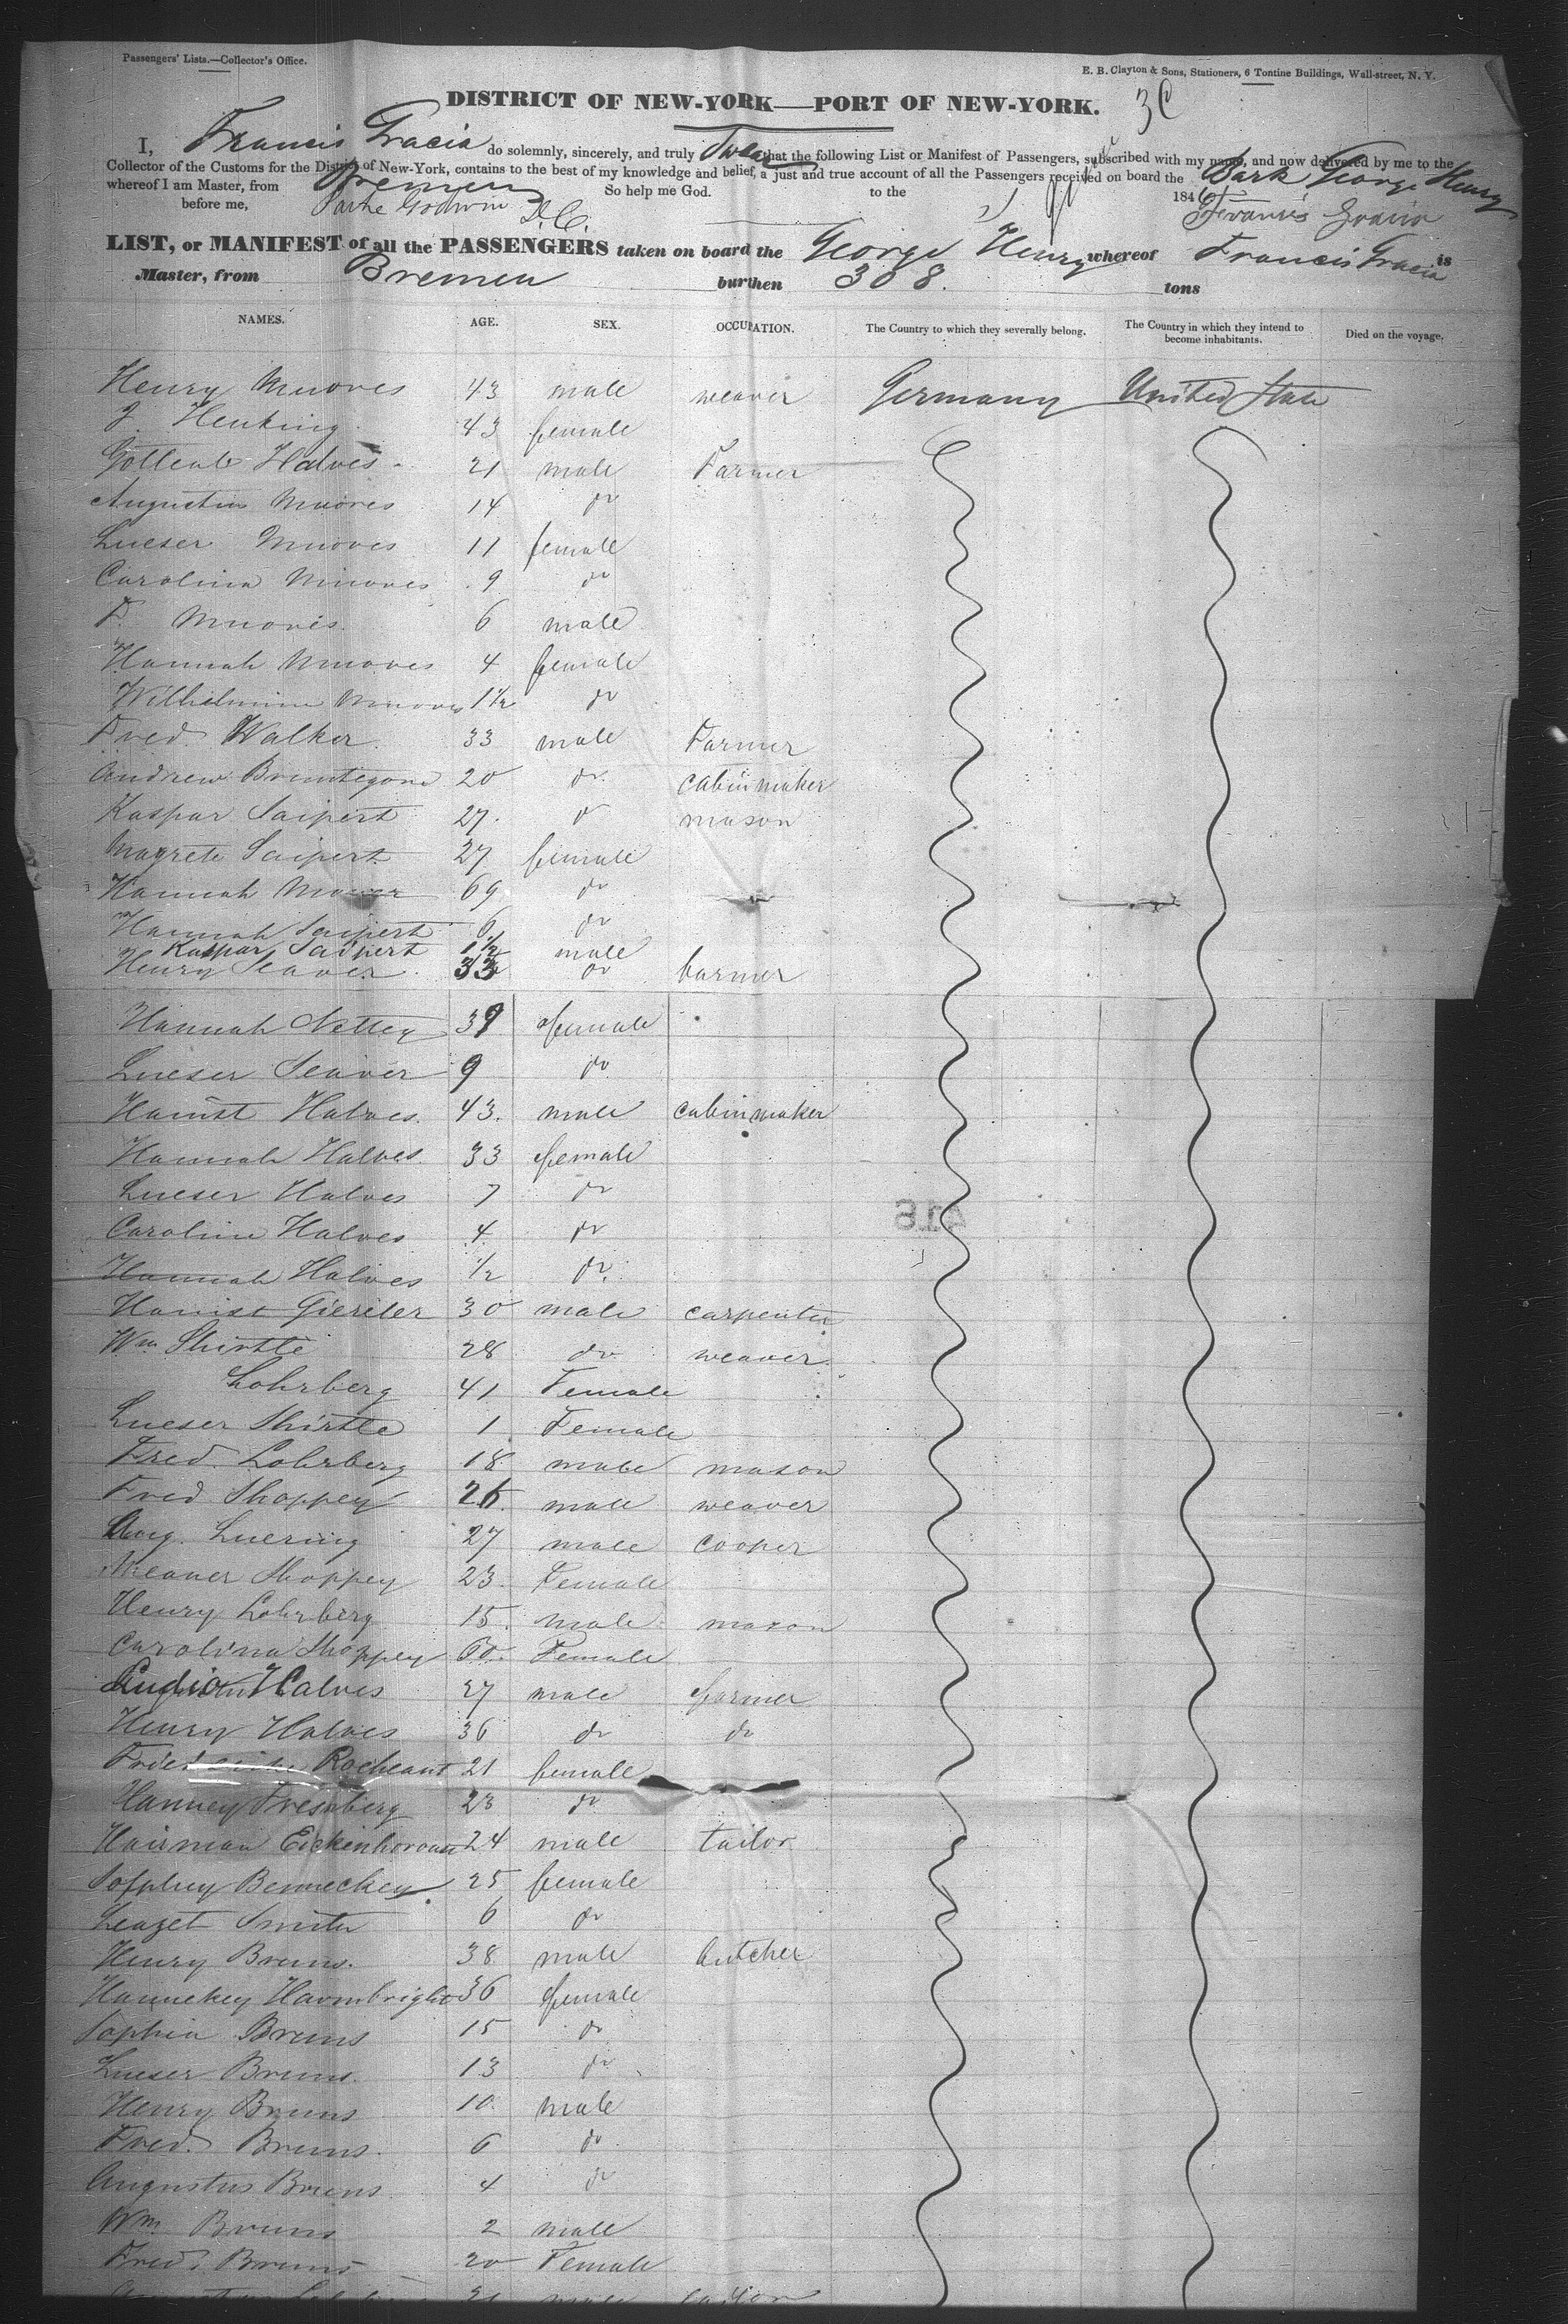 Passengers' Lists.—Collector's Office.
E. B. Clayton & Sons, Stationers, 6 Tontine Buildings, Wall-street, N. Y.
DISTRICT OF NEW-YORK—PORT OF NEW-YORK.
I, Francis Gracia do solemnly, sincerely, and truly Swear that the following List or Manifest of Passengers, subscribed with my name, and now delivered by me to the
Collector of the Customs for the District of New-York, contains to the best of my knowledge and belief, a just and true account of all the Passengers received on board the Bark George Henry
whereof I am Master, from Bremen So help me God. to the 1846
before me, Parke Godwin D.C. Francis Gracia
LIST, or MANIFEST of all the PASSENGERS taken on board the George Henry whereof Francis Gracia is
Master, from Bremen burthen 308. tons
NAMES. AGE. SEX. OCCUPATION. The Country to which they severally belong. The Country in which they intend to become inhabitants. Died on the voyage.
Henry Muoves 43 male weaver Germany United State
J. Henking 43 female
Gottleab Halves 21 male Farmer
Augustus Muoves 14 do
Lueser Muoves 11 female
Carolina Muoves 9 do
F. Muoves 6 male
Hannah Muoves 4 female
Wilhelmine Muoves 1½ do
Fred. Walker 33 male Farmer
Andrew 20 do cabinmaker
Kaspar Saipert 27 do mason
Magrete Saipert 27 female
Hannah 69 do
Hannah Saipert 6 do
Kaspar Saipert 1½ male
Henry Seaver 33 do farmer
Hannah Nettey 39 female
Lueser Seaver 9 do
Hainst Halves 43 male cabinmaker
Hannah Halves 33 female
Lueser Halves 7 do
Caroline Halves 4 do
Hannah Halves ½ do
Hainst Gieseler 30 male carpenter
Wm Shirtle 28 do weaver
Lohrberg 41 Female
Lueser Shirtle 1 Female
Fred. Lohrberg 18 male mason
Fred Shoppey 25 male weaver
Aug. Luering 27 male cooper
Shoppey 23 Female
Henry Lohrberg 15 male mason
Carolina Shoppey 60 Female
Halves 27 male farmer
Henry Halves 36 do do
Rocheant 21 female
Hanney Fresnberg 23 do
Hairman Eickenhoroan 24 male tailor
Sopphey Benneckey 25 female
Leazet Smith 6 do
Henry Bruns 38 male butcher
Hanneckey Harmbright 36 female
Sophia Bruns 15 do
Lueser Bruns 13 do
Henry Bruns 10 male
Fred. Bruns 6 do
Augustus Bruns 4 do
Wm. Bruns 2 male
Fred. Bruns 20 Female